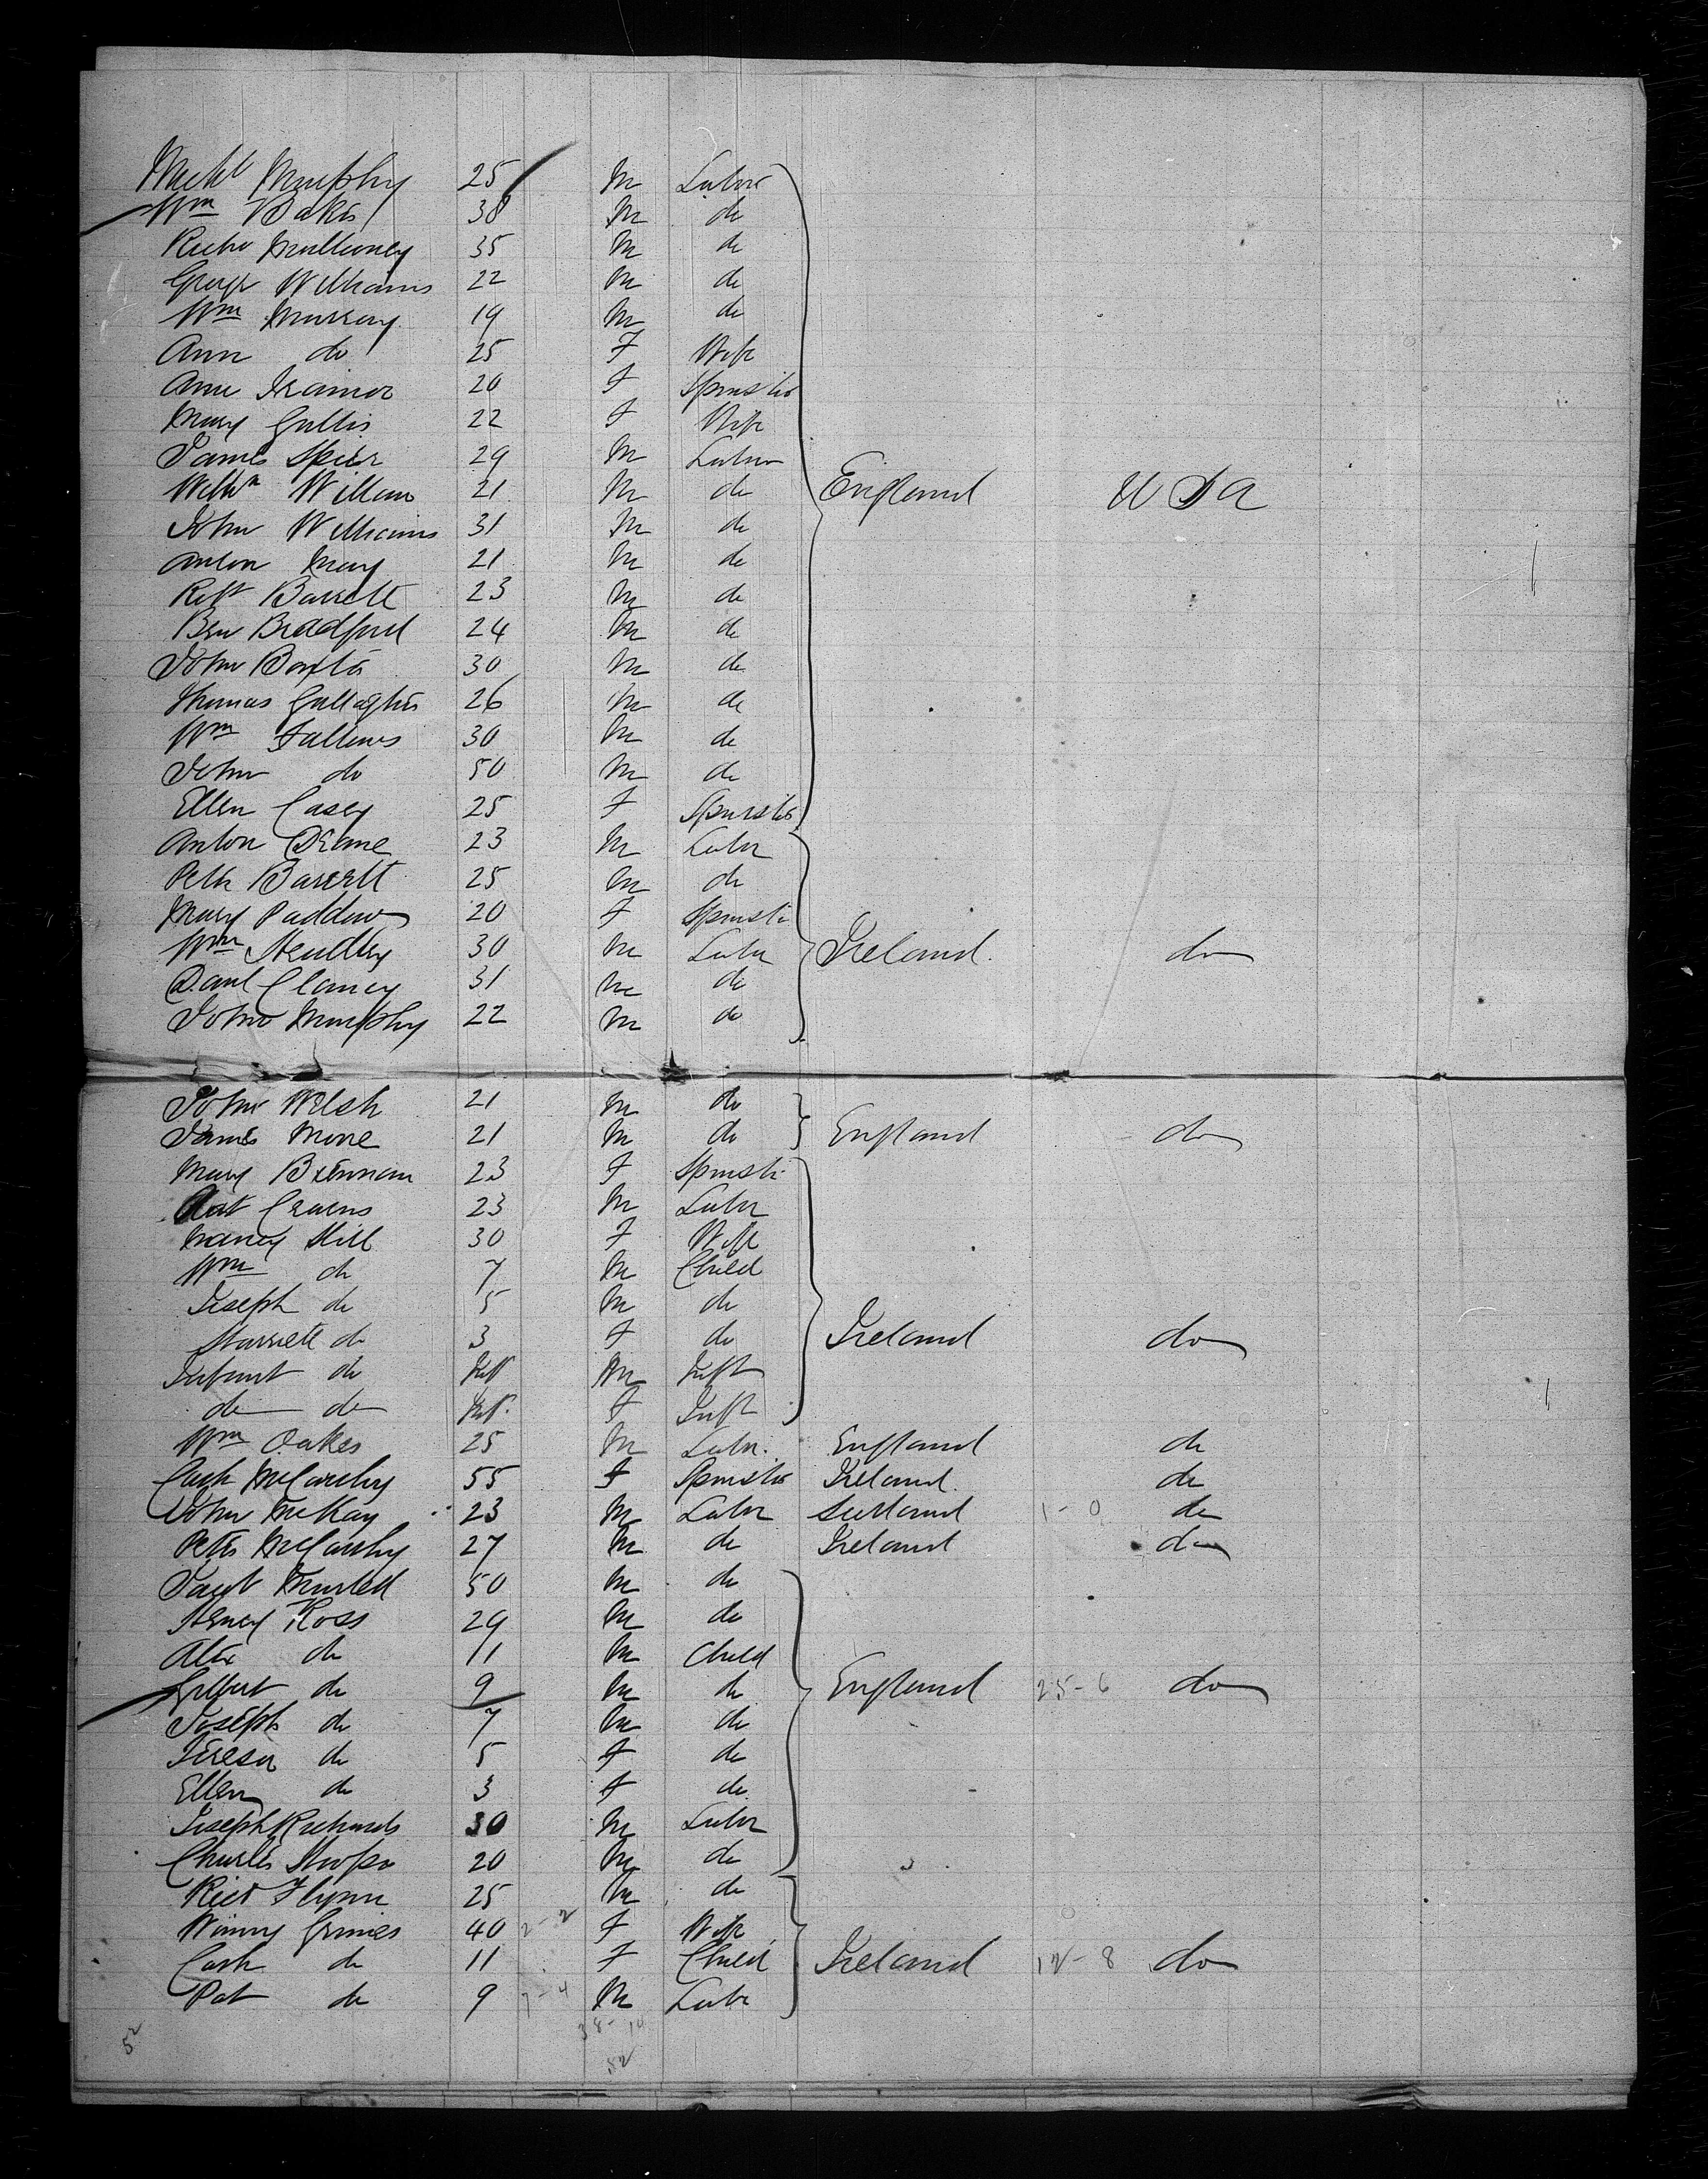 Michl Murphy 25 M Labor
Wm Baker 38 M do
Richd Mullowney 35 M do
George Williams 22 M do
Wm Murray 19 M do
Ann do 25 F Wife
Anne 20 F Spinster
Mary 22 F Wife
James Spier 29 M Labor
Willm William 21 M do England U S A
John Williams 31 M do
Anton May 21 M do
Robt Barrett 23 M do
Ben Bradford 24 M do
John Baxter 30 M do
Thomas Gallagher 26 M do
Wm Fallows 30 M do
John do 50 M do
Ellen Casey 25 F Spinster
Anton Deane 23 M Labr
Peter Barrett 25 M do
Mary Padden 20 F Spinstr
Wm 30 M Labr Ireland do
Danl Clancy 31 M do
John Murphy 22 M do
John Welsh 21 M do
James More 21 M do England do
Mary Brennan 23 F Spinstr
Pat 23 M Labr
Nancy Hill 30 F Wife
Wm do 7 M Child
Joseph do 5 M do
Harriett do 3 F do Ireland do
Infant do Inft M Inft
do do Inft F Inft
Wm Oakes 25 M Labr England do
Cath McCarthy 55 F Spinster Ireland do
John McKay 23 M Labr Scotland 1-0 do
Peter McCarthy 27 M do Ireland do
50 M do
Henry Ross 29 M do
Alex do 11 M Child
Gilbert do 9 M do England 25-6 do
Joseph do 7 M do
Teresa do 5 F do
Ellen do 3 F do
Joseph Richards 30 M Labr
Charles 20 M do
Richd Flynn 25 M do
Winny Grimes 40 2-2 F Wife
Cath do 11 F Child Ireland 12-8 do
Pat do 9 7-4 M Labr
38-14
52
52